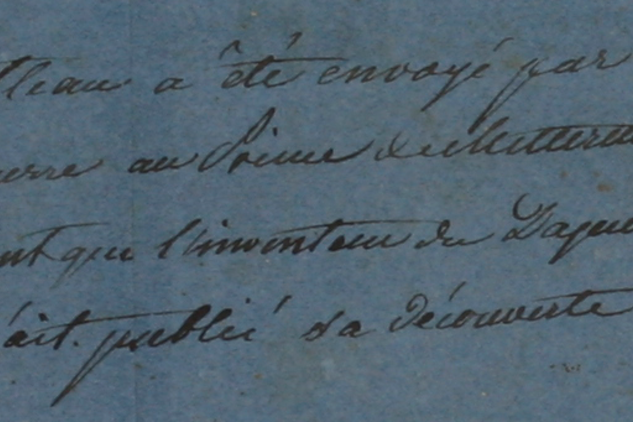 tleau a été envoyé par
uerre au Prince de Metterni
nt que l'inventeur du Dague
ait publié sa découverte